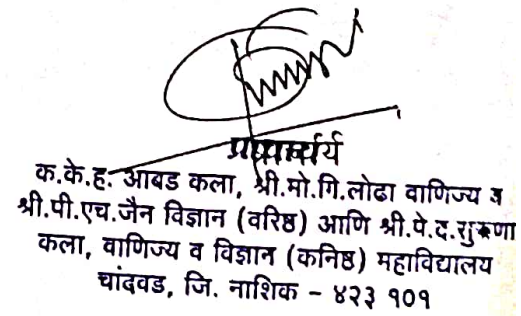 प्राचार्य
क.के.ह. आबड कला, श्री.मो.गि.लोढा वाणिज्य व
श्री.पी.एच.जैन विज्ञान (वरिष्ठ) आणि श्री.पे.द.सुराणा
कला, वाणिज्य व विज्ञान (कनिष्ठ) महाविद्यालय
चांदवड, जि. नाशिक - ४२३ १०१